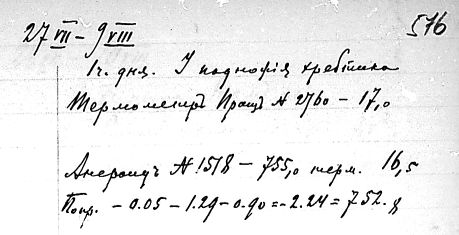 576
27 VII – 9 VIII
1 ч. дня. У подножiя хребтика
Термометръ Пращъ N 2760 – 17,0
Анероидъ N 1518 – 755,0 терм. 16,5
Попр. – 0.05 – 1.29 – 0.90 = – 2.24 = 752.8